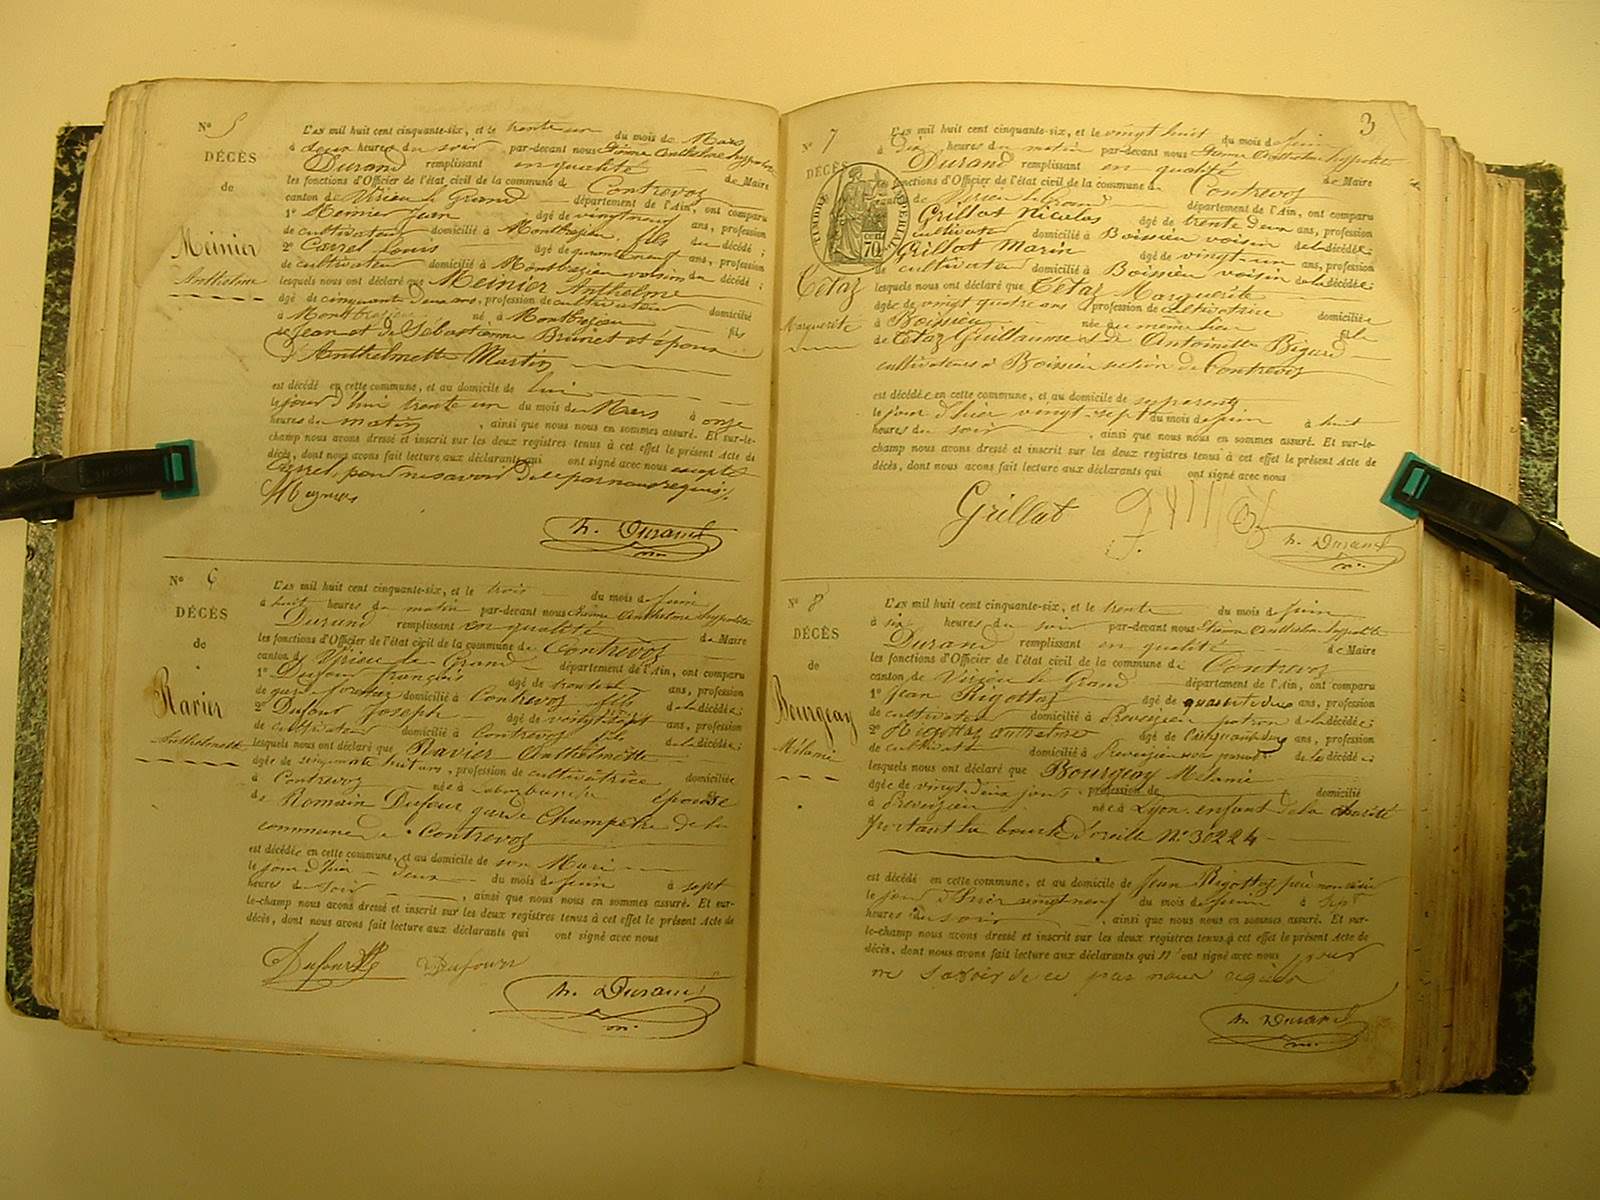 Nº 5
DÉCÈS
de
Meinier
Anthelme
L'AN mil huit cent cinquante-six, et le trente un du mois de Mars
à deux heures du soir par-devant nous Anthelme hyppolite
Durand remplissant en qualité de Maire
les fonctions d'Officier de l'état civil de la commune de Contrevoz
canton de Virieu le Grand département de l'Ain, ont comparu
1º Meinier Jean âgé de vingt neuf ans, profession
de cultivateur domicilié à Montbrezieu fils du décédé ;
2º Carrel Louis âgé de ans, profession
de cultivateur domicilié à Montbrezieu voisin du décédé ;
lesquels nous ont déclaré que Meinier Anthelme
âgé de cinquante deux ans, profession de cultivateur domicilié
à Montbrezieu né à Montbrezieu fils
de Jean et de Sébastienne Brunet et époux
d'Anthelmette Martin
est décédé en cette commune, et au domicile de lui
le jour d'hui trente un du mois de Mars à onze
heures du matin, ainsi que nous nous en sommes assuré. Et sur-le-
champ nous avons dressé et inscrit sur les deux registres tenus à cet effet le présent Acte de
décès, dont nous avons fait lecture aux déclarants qui ont signé avec nous excepté
Carrel, pour ne savoir de ce par nous requis.
h. Durand
Nº 6
DÉCÈS
de
Ravier
Anthelmette
L'AN mil huit cent cinquante-six, et le trois du mois de Juin
à huit heures du matin par-devant nous Anthelme hyppolite
Durand remplissant en qualité de Maire
les fonctions d'Officier de l'état civil de la commune de Contrevoz
canton de Virieu le Grand département de l'Ain, ont comparu
1º Dufour françois âgé de ans, profession
de garde forestier domicilié à Contrevoz fils de la décédée ;
2º Dufour Joseph âgé de vingt sept ans, profession
de cultivateur domicilié à Contrevoz fils de la décédée ;
lesquels nous ont déclaré que Ravier Anthelmette
âgée de cinquante huit ans, profession de cultivatrice domiciliée
à Contrevoz née à épouse
de Romain Dufour garde Champetre de la
commune de Contrevoz
est décédée en cette commune, et au domicile de son Mari
le jour d'hier deux du mois de Juin à sept
heures du soir, ainsi que nous nous en sommes assuré. Et sur-
le-champ nous avons dressé et inscrit sur les deux registres tenus à cet effet le présent Acte de
décès, dont nous avons fait lecture aux déclarants qui ont signé avec nous
Dufour Dufour
h. Durand
3
Nº 7
DÉCÈS
TIMBRE IMPÉRIAL
70
Cétaz
Marguerite
L'AN mil huit cent cinquante-six, et le vingt huit du mois de Juin
à dix heures du matin par-devant nous Anthelme hyppolite
Durand remplissant en qualité de Maire
les fonctions d'Officier de l'état civil de la commune de Contrevoz
canton de Virieu le Grand département de l'Ain, ont comparu
Grillot Nicolas âgé de trente deux ans, profession
cultivateur domicilié à Boissieu voisin de la décédée ;
Grillot Marin âgé de vingt-un ans, profession
de cultivateur domicilié à Boissieu voisin de la décédée ;
lesquels nous ont déclaré que Cétaz Marguerite
âgée de vingt quatre ans profession de cultivatrice domiciliée
à Boissieu née au meme lieu fille
de Cétaz Guillaume et de Antoinette Bigard
cultivateurs à Boissieu section de Contrevoz
est décédée en cette commune, et au domicile de ses parents
le jour d'hier vingt-sept du mois de Juin à huit
heures du soir, ainsi que nous nous en sommes assuré. Et sur-le-
champ nous avons dressé et inscrit sur les deux registres tenus à cet effet le présent Acte de
décès, dont nous avons fait lecture aux déclarants qui ont signé avec nous
Grillot
h. Durand
Nº 8
DÉCÈS
de
Bourgeay
Mélanie
L'AN mil huit cent cinquante-six, et le trente du mois de Juin
à six heures du soir par-devant nous Anthelme hyppolite
Durand remplissant en qualité de Maire
les fonctions d'Officier de l'état civil de la commune de Contrevoz
canton de Virieu le Grand département de l'Ain, ont comparu
1º Jean Rigottaz âgé de quarante deux ans, profession
de cultivateur domicilié à Preveyzieu patron de la décédée ;
2º Rigottaz âgé de ans, profession
de cultivateur domicilié à Preveyzieu de la décédée ;
lesquels nous ont déclaré que Bourgeay Mélanie
âgée de vingt deux jours, profession de domicilié
à Preveyzieu née à Lyon enfant de la Charité
portant la boucle d'oreille Nº 30224
est décédée en cette commune, et au domicile de Jean Rigottaz père nourricier
le jour d'hier vingt neuf du mois de Juin à sept
heures du soir, ainsi que nous nous en sommes assuré. Et sur-
le-champ nous avons dressé et inscrit sur les deux registres tenus à cet effet le présent Acte de
décès, dont nous avons fait lecture aux déclarants qui n'ont signé avec nous pour
ne savoir de ce par nous requis
h. Durand